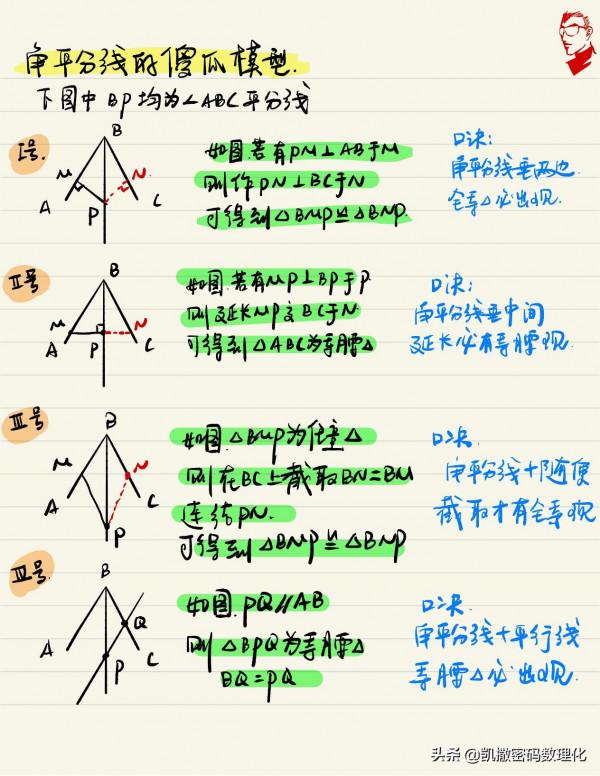 角平分线的傻瓜模型.
下图中 BP均为∠ABC平分线
Ⅰ号.
B
M
N
A
P
C
如图.若有PM⊥AB于M
则作PN⊥BC于N
可得到△BMP≌△BNP.
口诀:
角平分线垂两边
全等△必出现.
Ⅱ号
B
M
N
A
P
C
如图.若有MP⊥BP于P
则延长MP交BC于N
可得到△ABC为等腰△
口诀:
角平分线垂中间
延长必有等腰现.
Ⅲ号
B
M
N
A
C
P
如图.△BMP为任意△
则在BC上截取BN=BM
连结PN.
可得到△BMP≌△BNP
口诀.
角平分线+随便
截取才有全等现
Ⅲ号.
B
Q
A
P
C
如图.PQ∥AB
则△BPQ为等腰△
BQ=PQ
口诀.
角平分线+平行线
等腰△必出现.
头条 @凯撒密码数理化